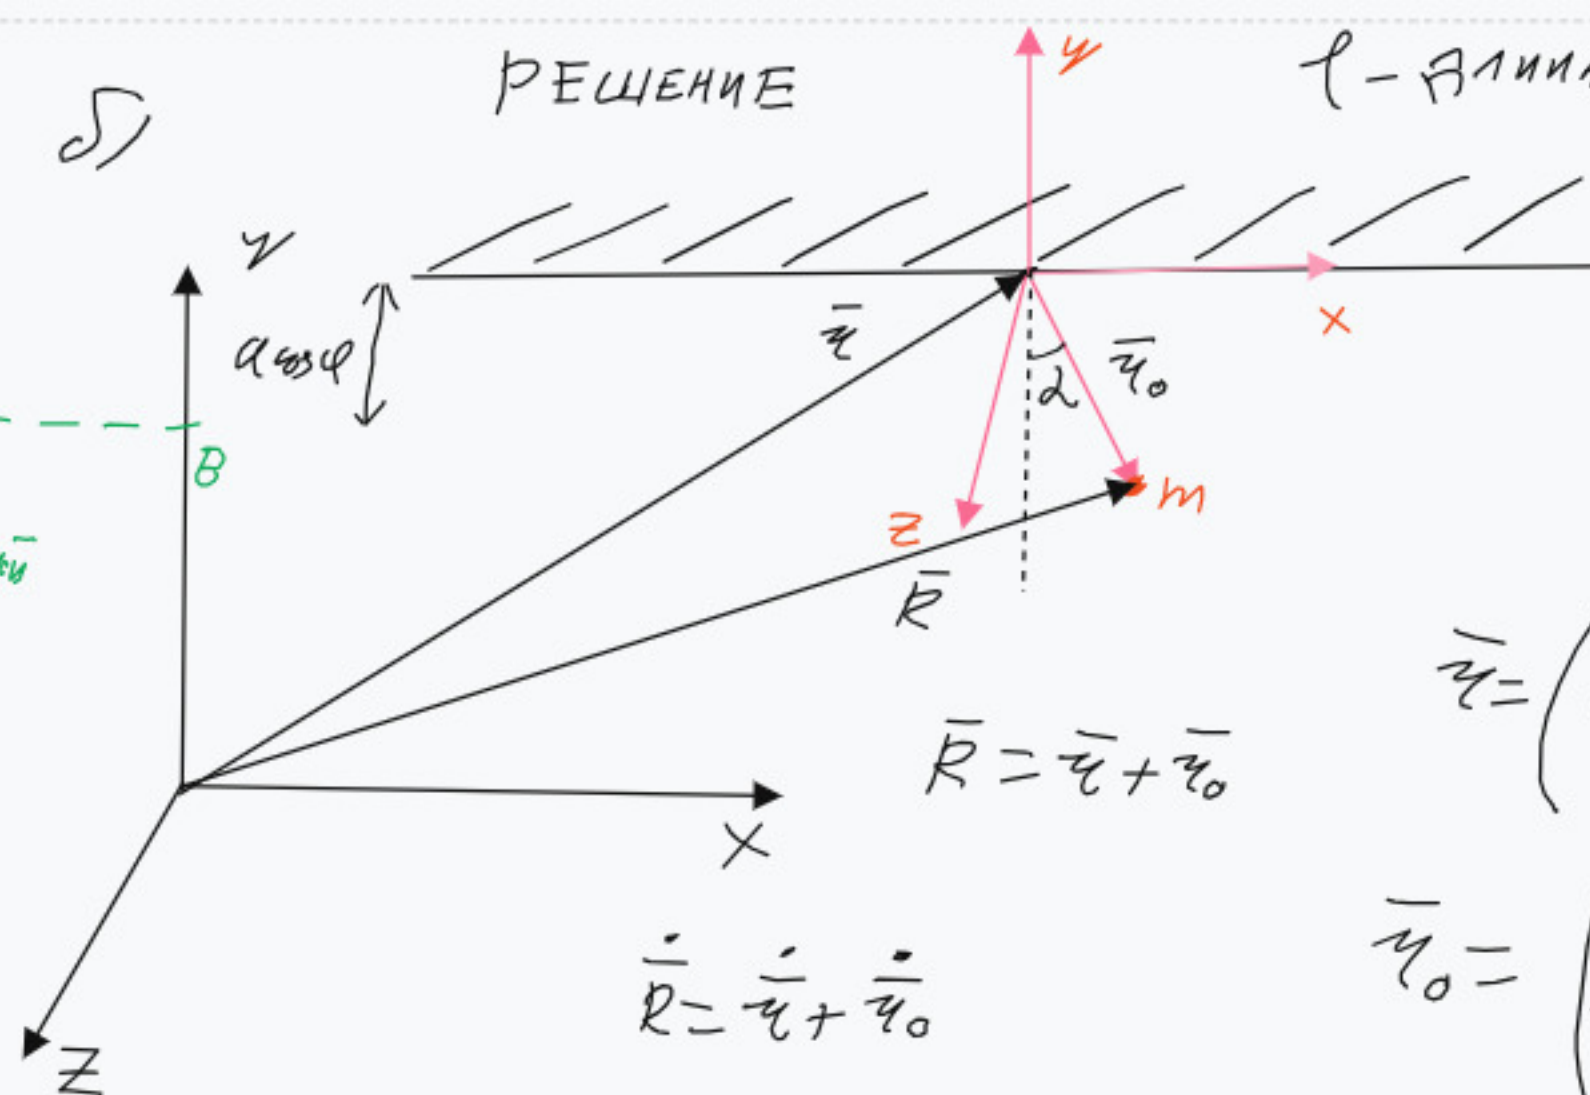 б) РЕШЕНИЕ y l - длин
y
a cosφ
B
r̄
x
r̄₀
α
z
m
R̄
r̄ = (
R̄ = r̄ + r̄₀
x
r̄₀ =
Ṙ̄ = ṙ̄ + ṙ̄₀
z